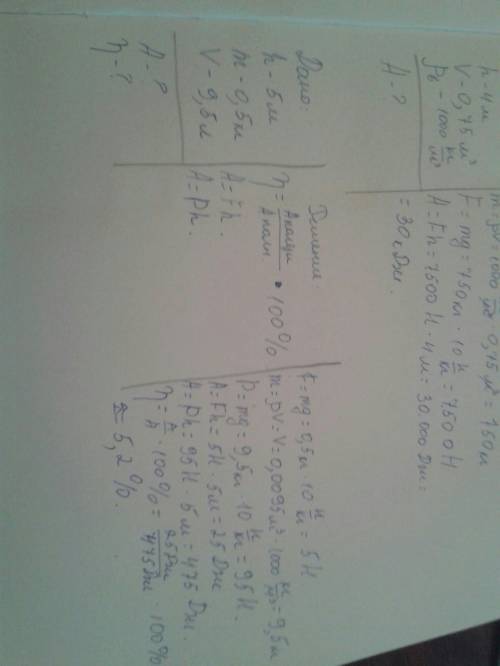 h - 4 м
V - 0,75 м³
ρв - 1000 кг/м³
A - ?
0,75 м³ = 750 кг
F = mg = 750 кг · 10 Н/кг = 7500 Н
A = Fh = 7500 Н · 4 м = 30.000 Дж =
= 30 кДж.
Дано:
h - 5 м
m - 0,5 кг
V - 9,5 л
A - ?
η - ?
Решение:
η = Aполезн / Aполн · 100%
A = Fh.
A = Ph.
F = mg = 0,5 кг · 10 Н/кг = 5 Н
m = ρV = V = 0,0095 м³ · 1000 кг/м³ = 9,5 кг
P = mg = 9,5 кг · 10 Н/кг = 95 Н.
A = Fh = 5 Н · 5 м = 25 Дж
A = Ph = 95 Н · 5 м = 475 Дж.
η = A/A · 100% = 25 Дж / 475 Дж · 100%
= 5,2 %.